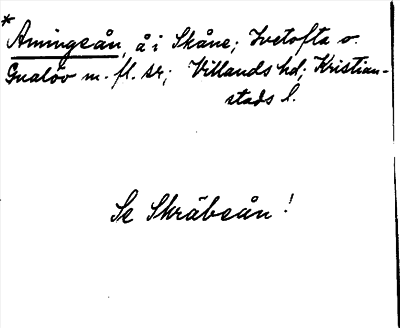 * Amingsån, å i Skåne; Ivetofta o.
Gualöv m. fl. sr; Villands hd; Kristian-
stads l.
Se Skräbeån!